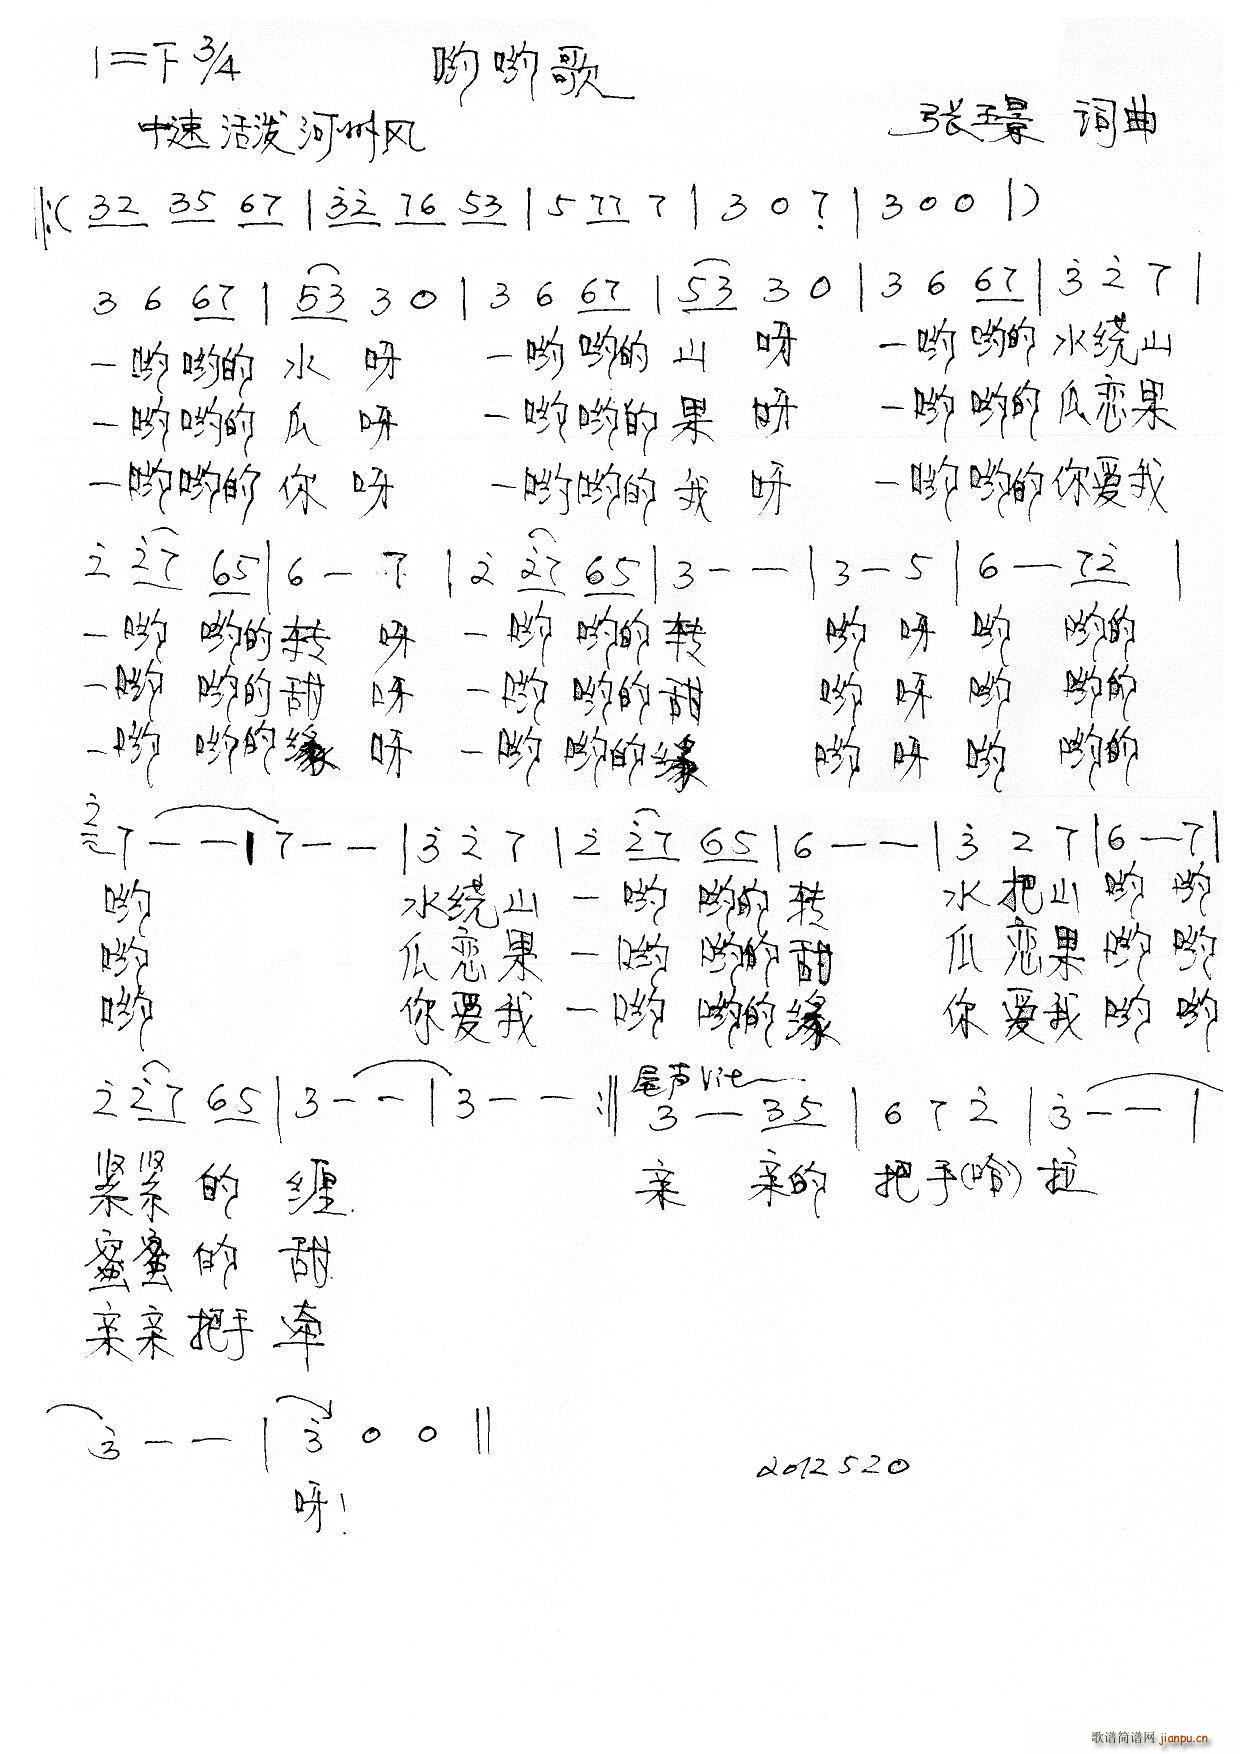 1=F 3/4 哟哟歌
中速 活泼 河州风 张玉景 词曲
‖:( 32 35 67 | 3̇2̇ 76 53 | 5 77 7 | 3 0 7̣ | 3 0 0 | )
3 6 67 | 53 3 0 | 3 6 67 | 53 3 0 | 3 6 67 | 3̇ 2̇ 7 |
一哟哟的 水 呀 一哟哟的 山 呀 一哟哟的 水绕山
一哟哟的 瓜 呀 一哟哟的 果 呀 一哟哟的 瓜恋果
一哟哟的 你 呀 一哟哟的 我 呀 一哟哟的 你爱我
2̇ 2̇7 65 | 6 — 7 | 2̇ 2̇7 65 | 3 — — | 3 — 5 | 6 — 72̇ |
一哟 哟的转 呀 一哟 哟的转 哟 呀 哟 哟的
一哟 哟的甜 呀 一哟 哟的甜 哟 呀 哟 哟的
一哟 哟的缘 呀 一哟 哟的缘 哟 呀 哟 哟的
2̇ 7 — — | 7 — — | 3̇ 2̇ 7 | 2̇ 2̇7 65 | 6 — — | 3̇ 2 7 | 6 — 7 |
哟 水绕山 一哟 哟的 转 水把山 哟 哟
哟 瓜恋果 一哟 哟的甜 瓜恋果 哟 哟
哟 你爱我 一哟 哟的缘 你爱我 哟 哟
2̇ 2̇7 65 | 3 — — | 3 — — :‖ 尾声 Vit 3 — 35 | 6 7 2̇ | 3̇ — — |
紧紧 的 缠 亲 亲的 把手(哈)拉
蜜蜜 的 甜
亲亲把手 牵
3̇ — — | 3̇ 0 0 ‖
2012 5 20
呀!
歌谱简谱网 jianpu.cn